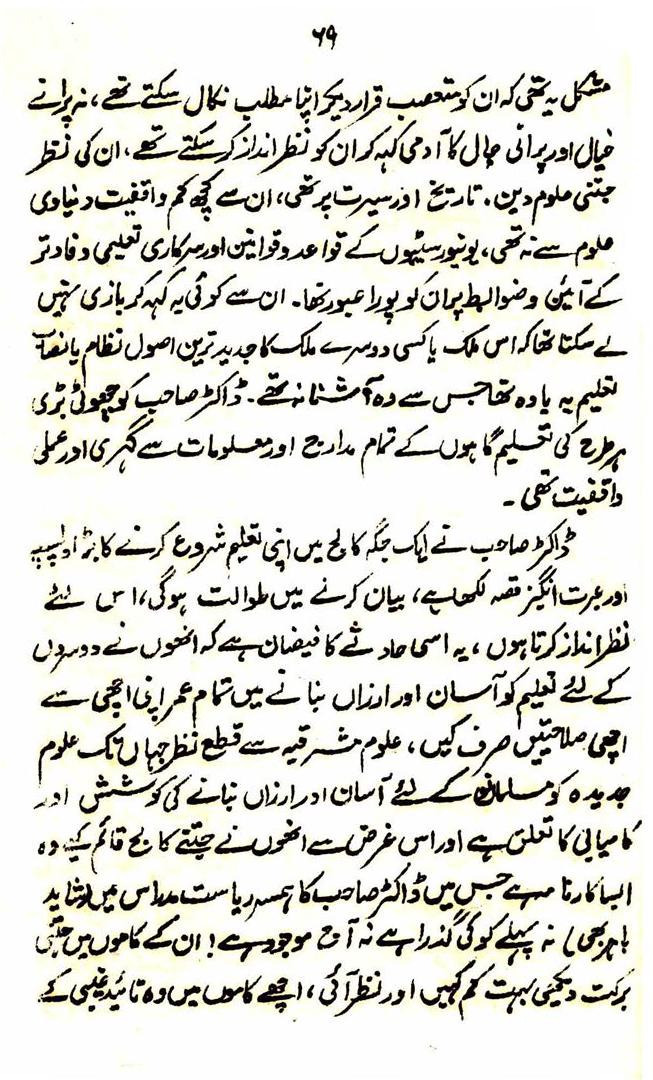 ۶۹
مشکل یہ تھی کہ ان کو متعصب قرار دیکر اپنا مطلب نکال سکتے تھے، نہ پرانے
خیال اور پرانی چال کا آدمی کہہ کر ان کو نظر انداز کر سکتے تھے، ان کی نظر
جتنی علوم دین۔ تاریخ اور سیرت پر تھی، ان سے کچھ کم واقفیت دنیاوی
علوم سے نہ تھی، یونیورسیٹیوں کے قواعد و قوانین اور سرکاری تعلیمی دفاتر
کے آئین و ضوابط پر ان کو پورا عبور تھا۔ ان سے کوئی یہ کہہ کر بازی نہیں
لے سکتا تھا کہ اس ملک یا کسی دوسرے ملک کا جدید ترین اصول نظام یا نصاب
تعلیم یہ یا وہ تھا جس سے وہ آشنا نہ تھے۔ ڈاکٹر صاحب کو چھوٹی بڑی
ہر طرح کی تعلیم گاہوں کے تمام مدارج اور معلومات سے گہری اور عملی
واقفیت تھی۔
ڈاکٹر صاحب نے ایک جگہ کالج میں اپنی تعلیم شروع کرنے کا بڑا دلچسپ
اور عبرت انگیز قصہ لکھا ہے، بیان کرنے میں طوالت ہوگی، اس لئے
نظر انداز کرتا ہوں، یہ اسی حادثے کا فیضان ہے کہ انھوں نے دوسروں
کے لئے تعلیم کو آسان اور ارزاں بنانے میں تمام عمر اپنی اچھی سے
اچھی صلاحیتیں صرف کیں، علوم مشرقیہ سے قطع نظر جہاں تک علوم
جدیدہ کو مسلمانوں کے لئے آسان اور ارزاں بنانے کی کوشش اور
کامیابی کا تعلق ہے اور اس غرض سے انھوں نے جتنے کالج قائم کیے وہ
ایسا کارنامہ ہے جس میں ڈاکٹر صاحب کا ہمسر ریاست مدراس میں (شاید
باہر بھی) نہ پہلے کوئی گذرا ہے نہ آج موجود ہے! ان کے کاموں میں جتنی
برکت دیکھی بہت کم کہیں اور نظر آئی، اچھے کاموں میں وہ تائید غیبی کے